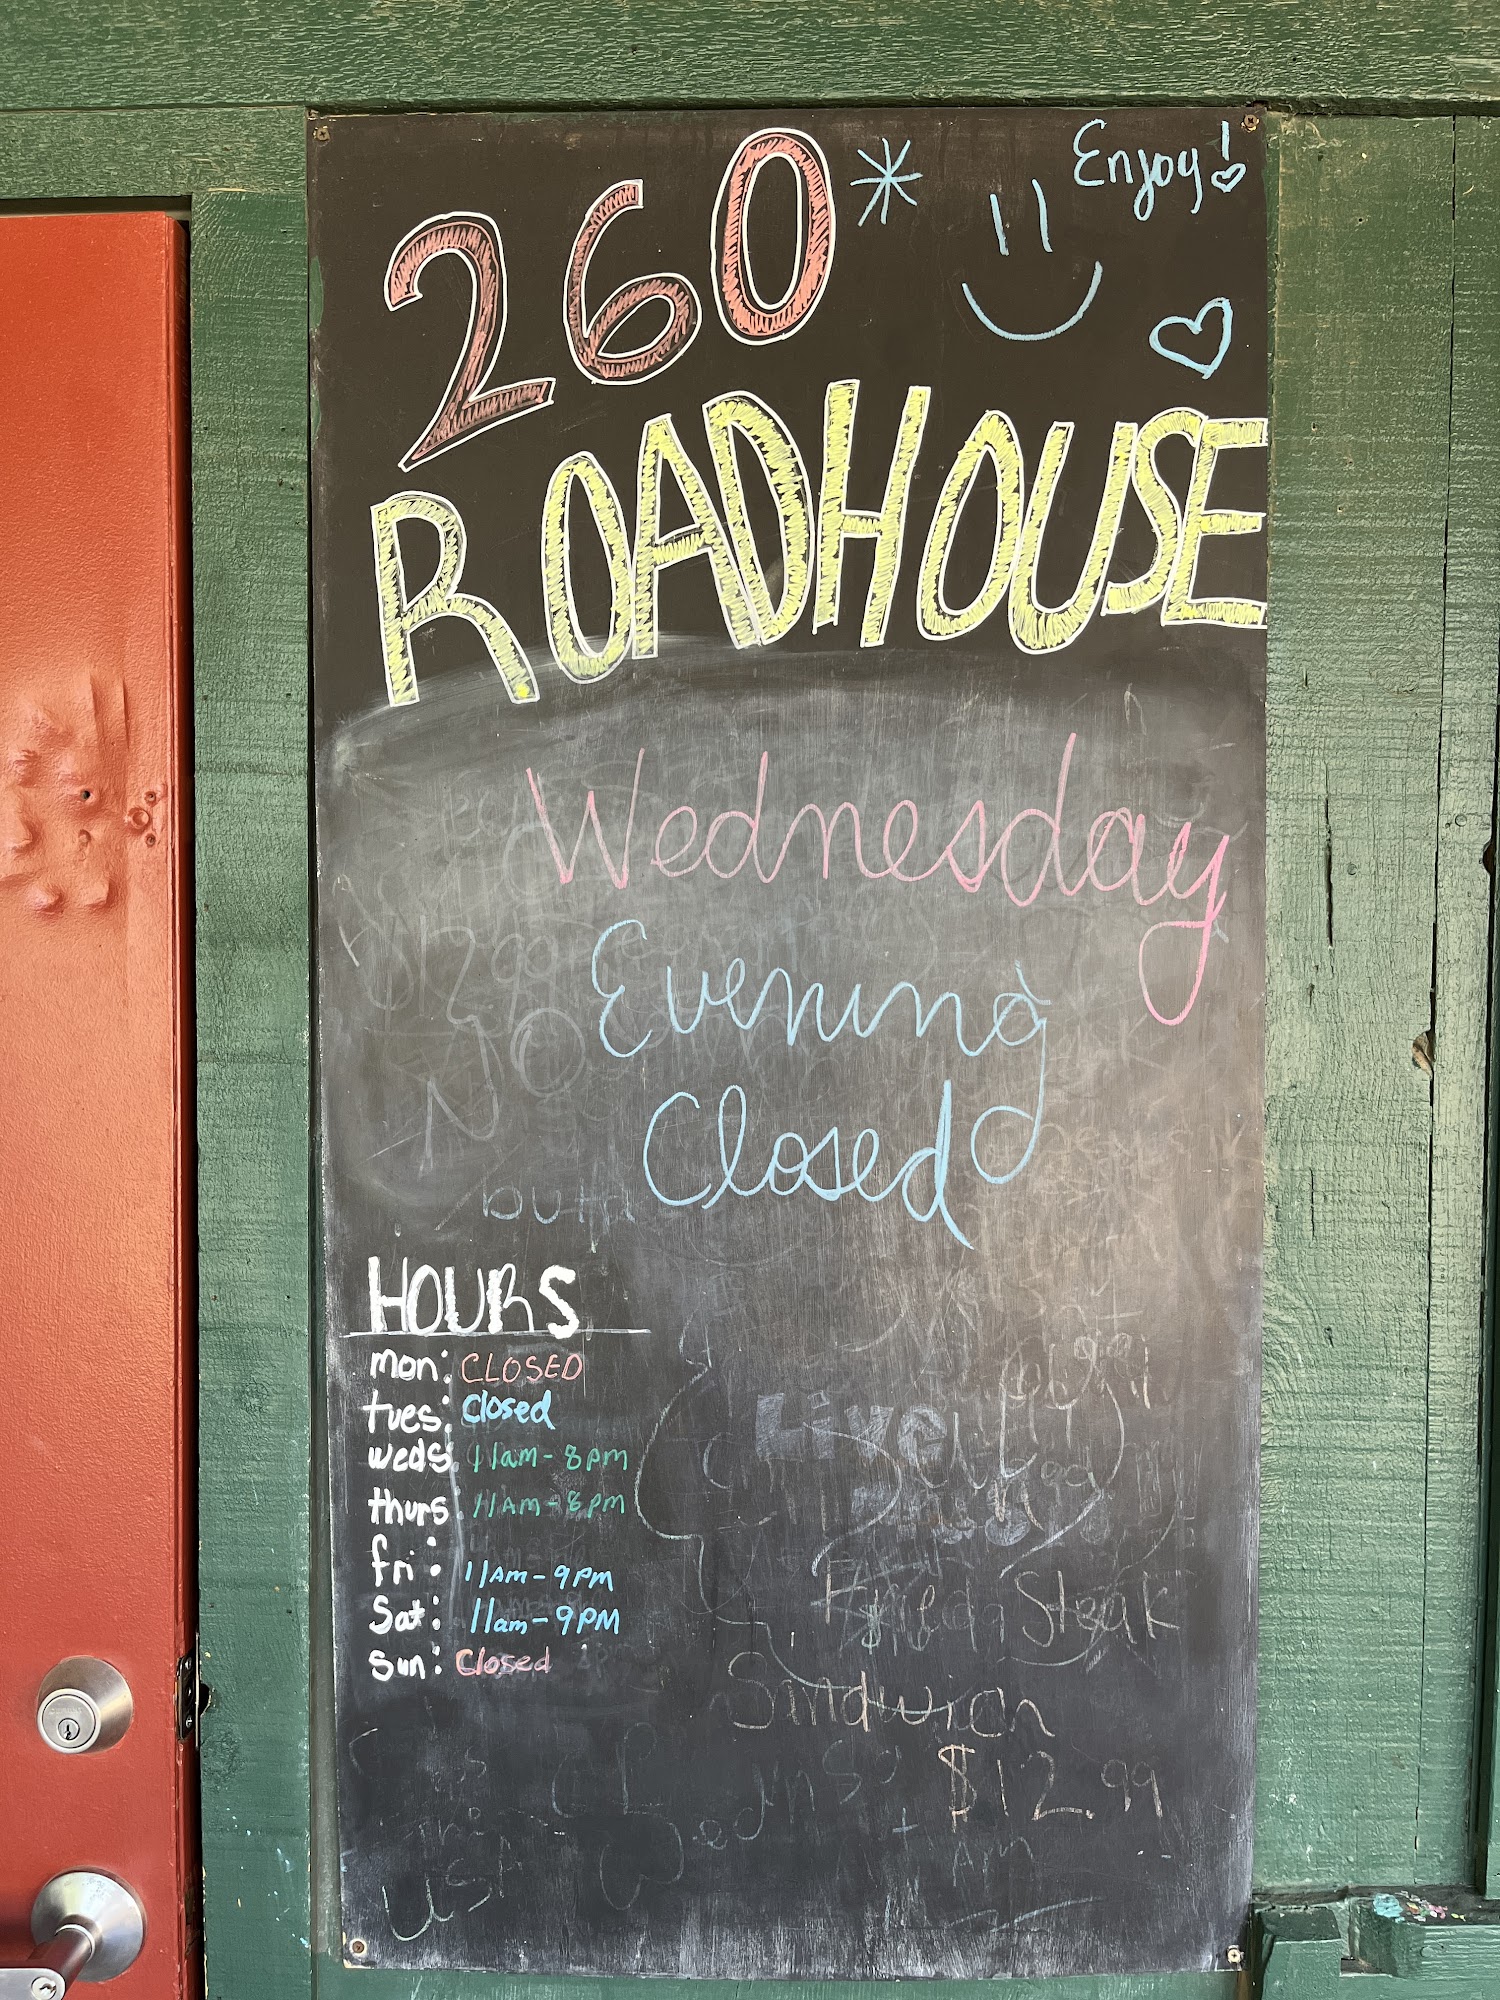 260*
Enjoy!
ROADHOUSE
Wednesday
Evening
Closed
HOURS
mon: CLOSED
tues: Closed
weds: 11am-8pm
thurs: 11AM-8pm
fri: 11AM-9PM
Sat: 11am-9PM
Sun: Closed
Fried Steak
Sandwich
$12.99